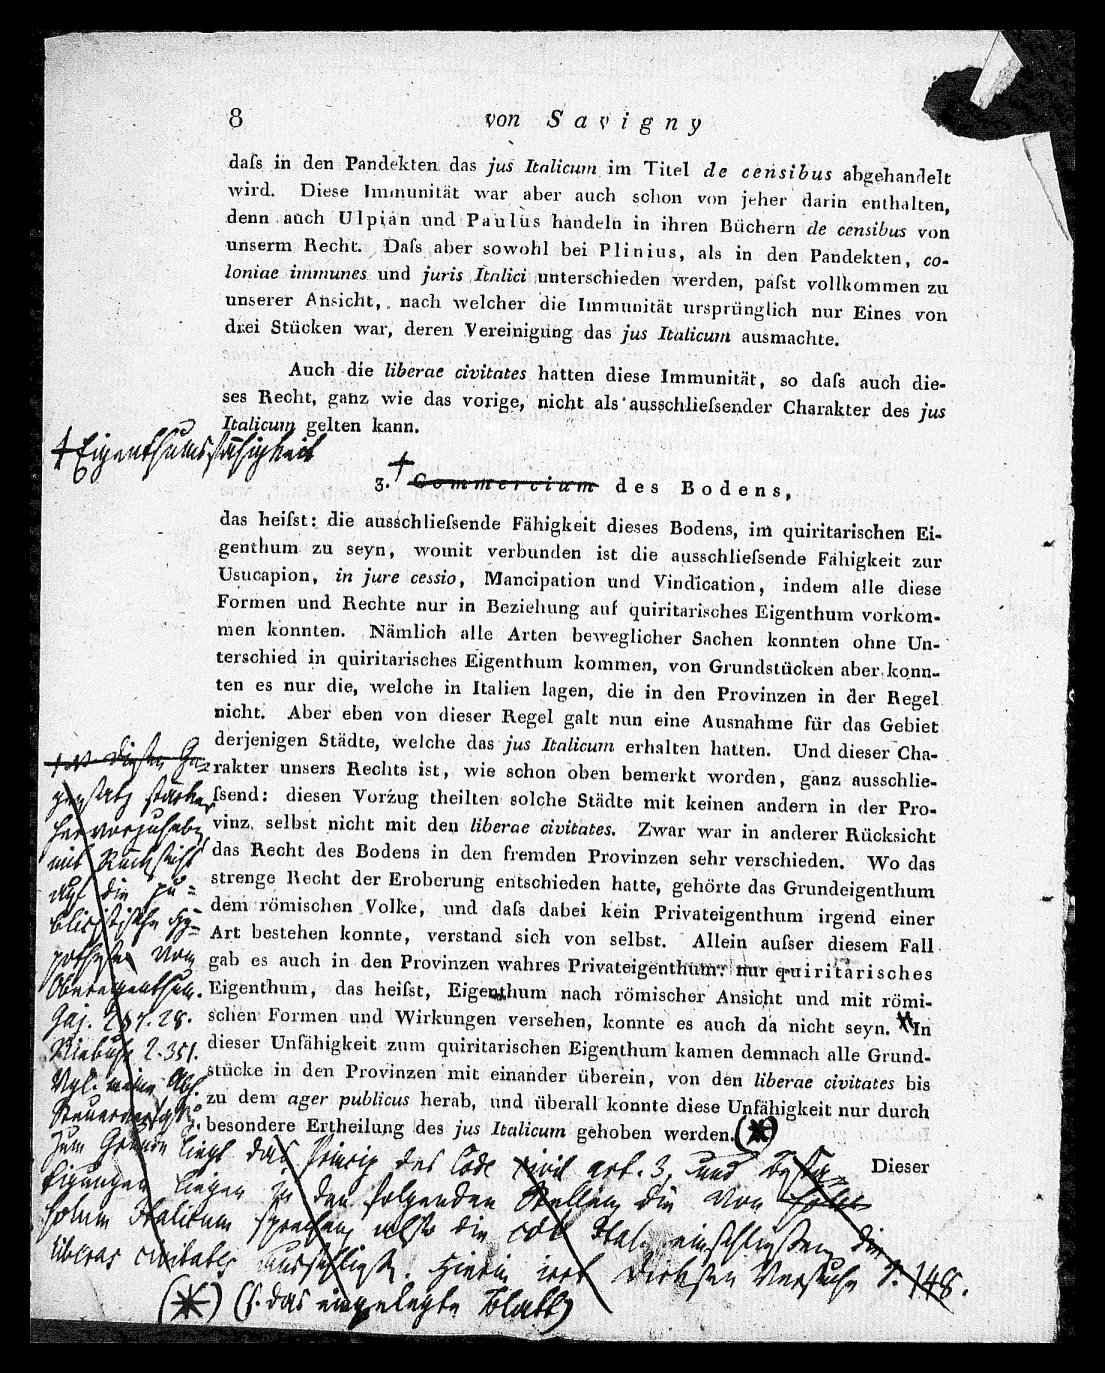 8
von Savigny
daſs in den Pandekten das jus Italicum im Titel de censibus abgehandelt
wird. Diese Immunität war aber auch schon von jeher darin enthalten,
denn auch Ulpian und Paulus handeln in ihren Büchern de censibus von
unserm Recht. Daſs aber sowohl bei Plinius, als in den Pandekten, co-
loniae immunes und juris Italici unterschieden werden, paſst vollkommen zu
unserer Ansicht, nach welcher die Immunität ursprünglich nur Eines von
drei Stücken war, deren Vereinigung das jus Italicum ausmachte.
Auch die liberae civitates hatten diese Immunität, so daſs auch die-
ses Recht, ganz wie das vorige, nicht als ausschlieſsender Charakter des jus
Italicum gelten kann.
† Eigenthumsfähigkeit
3. † Commercium des Bodens,
das heiſst: die ausschlieſsende Fähigkeit dieses Bodens, im quiritarischen Ei-
genthum zu seyn, womit verbunden ist die ausschlieſsende Fähigkeit zur
Usucapion, in jure cessio, Mancipation und Vindication, indem alle diese
Formen und Rechte nur in Beziehung auf quiritarisches Eigenthum vorkom-
men konnten. Nämlich alle Arten beweglicher Sachen konnten ohne Un-
terschied in quiritarisches Eigenthum kommen, von Grundstücken aber konn-
ten es nur die, welche in Italien lagen, die in den Provinzen in der Regel
nicht. Aber eben von dieser Regel galt nun eine Ausnahme für das Gebiet
derjenigen Städte, welche das jus Italicum erhalten hatten. Und dieser Cha-
rakter unsers Rechts ist, wie schon oben bemerkt worden, ganz ausschlie-
ſsend: diesen Vorzug theilten solche Städte mit keinen andern in der Pro-
vinz, selbst nicht mit den liberae civitates. Zwar war in anderer Rücksicht
das Recht des Bodens in den fremden Provinzen sehr verschieden. Wo das
strenge Recht der Eroberung entschieden hatte, gehörte das Grundeigenthum
dem römischen Volke, und daſs dabei kein Privateigenthum irgend einer
Art bestehen konnte, verstand sich von selbst. Allein auſser diesem Fall
gab es auch in den Provinzen wahres Privateigenthum: nur quiritarisches
Eigenthum, das heiſst, Eigenthum nach römischer Ansicht und mit römi-
schen Formen und Wirkungen versehen, konnte es auch da nicht seyn. In
dieser Unfähigkeit zum quiritarischen Eigenthum kamen demnach alle Grund-
stücke in den Provinzen mit einander überein, von den liberae civitates bis
zu dem ager publicus herab, und überall konnte diese Unfähigkeit nur durch
besondere Ertheilung des jus Italicum gehoben werden. (*)
Dieser
diesen Ge-
gensatz stärker
hervorzuheben,
mit Rücksicht
auf die pu-
blicistische Hy-
pothese vom
Obereigenthum.
Gaj. 2 §7. 28.
Niebuhr 2. 351.
Vgl. meine Abh.
Zum Grunde liegt das Princip des Code civil art. 3, und
liegen in den folgenden Stellen, die von
solum Italicum sprechen, also die Ital. einschließen, die
liberas civitates ausschließen. Hierin irrt Dirksen Versuche S. 148.
(*) (s. das eingelegte Blatt)